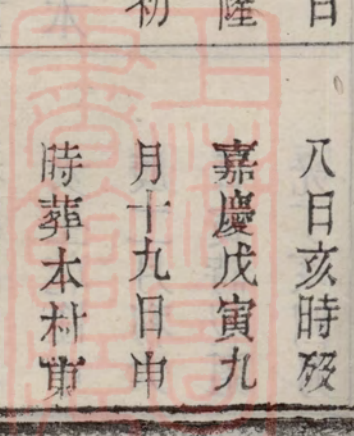 日
隆
初
八日亥時歿
嘉慶戊寅九
月十九日申
時葬本村東